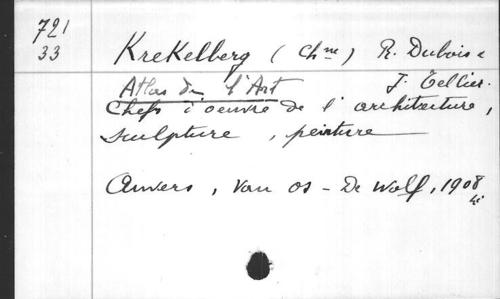 721
33
Krekelberg ( Chne ) R. Dubois &
Atlas de l'Art J. Tellier.
Chefs d'oeuvre de l'architecture,
sculpture, peinture
Anvers, Van os - De Wolf, 1908
4°